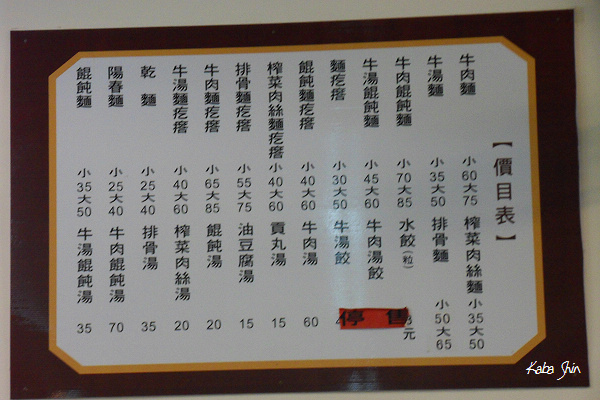 【價目表】
牛肉麵 小60大75
牛湯麵 小35大50
牛肉餛飩麵 小70大85
牛湯餛飩麵 小45大60
麵疙瘩 小30大50
餛飩麵疙瘩 小40大60
榨菜肉絲麵疙瘩 小40大60
排骨麵疙瘩 小55大75
牛肉麵疙瘩 小65大85
牛湯麵疙瘩 小40大60
乾麵 小25大40
陽春麵 小25大40
餛飩麵 小35大50
榨菜肉絲麵 小35大50
排骨麵 小50大65
水餃(粒) 元
牛肉湯餃
牛湯餃
停售
牛肉湯 60
貢丸湯 15
油豆腐湯 15
餛飩湯 20
榨菜肉絲湯 20
排骨湯 35
牛肉餛飩湯 70
牛湯餛飩湯 35
Kaba Shin